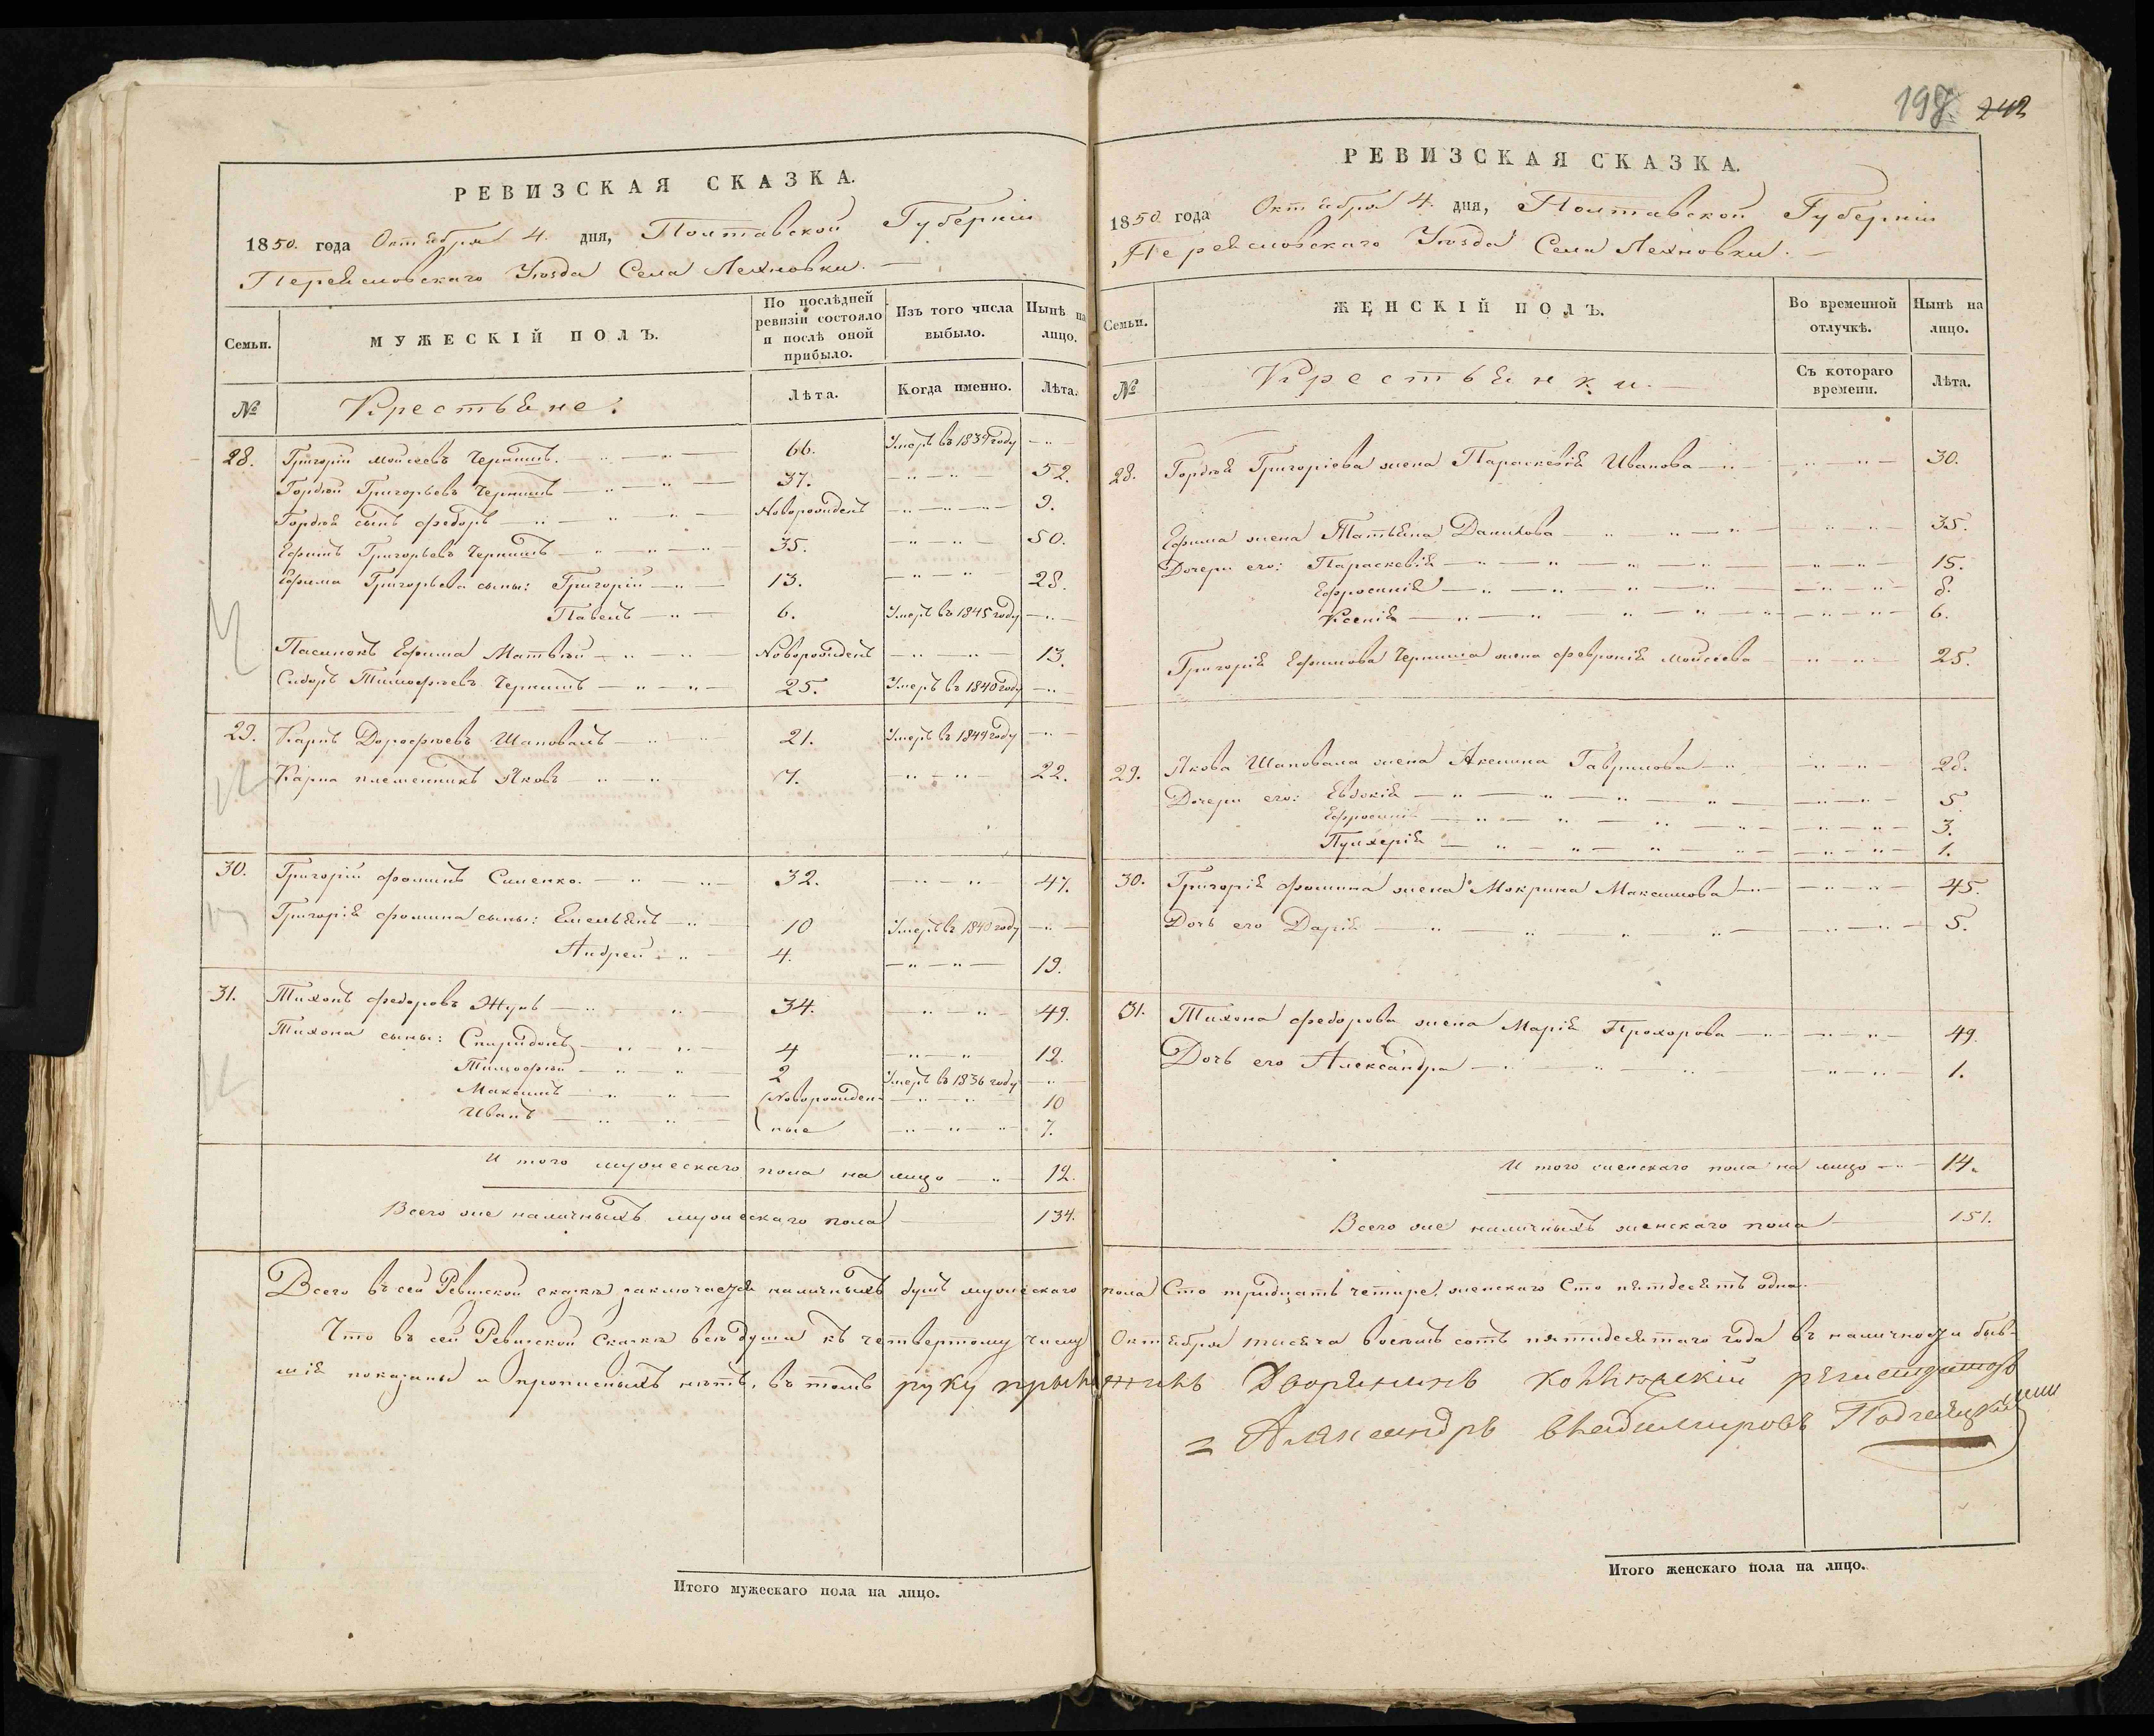 РЕВИЗСКАЯ СКАЗКА.
1850. года Октября 4. дня, Полтавской Губерніи
Переясловскаго Уѣзда Села Лехновки.
Семьи.
МУЖЕСКІЙ ПОЛЪ.
По послѣдней ревизіи состояло и послѣ оной прибыло.
Изъ того числа выбыло.
Нынѣ на лицо.
№
Крестьяне.
Лѣта.
Когда именно.
Лѣта.
28. Григорій Мойсеевъ Чернышъ. 66. Умеръ въ 1839 году
Гордѣй Григорьевъ Чернышъ 37. 52.
Гордѣя сынъ Федоръ Новорожденъ 9.
Ефимъ Григорьевъ Чернышъ 35. 50.
Ефима Григорьева сыны: Григорій 13. 28.
Павелъ 6. Умеръ въ 1845 году
Пасынокъ Ефима Матвѣй Новорожденъ 13.
Сидоръ Тимофѣевъ Чернышъ 25. Умеръ въ 1840 году
29. Карпъ Дорофѣевъ Шаповалъ 21. Умеръ въ 1849 году
Карпа племенникъ Яковъ 7. 22.
30. Григорій Фоминъ Силенко. 32. 47.
Григорія Фомина сыны: Емельянъ 10 Умеръ въ 1840 году
Андрей 4. 19.
31. Тихонъ Федоровъ Жукъ 34. 49.
Тихона сыны: Спиридонъ 4 19.
Тимофѣй 2 Умеръ въ 1836 году
Максимъ Новорожден- 10
Иванъ ные 7.
И того мужескаго пола на лицо 12.
Всего же наличныхъ мужескаго пола 134.
Итого мужескаго пола на лицо.
198 242
РЕВИЗСКАЯ СКАЗКА.
1850 года Октября 4. дня, Полтавской Губерніи
Переясловскаго Уѣзда Села Лехновки.
Семьи.
ЖЕНСКІЙ ПОЛЪ.
Во временной отлучкѣ.
Нынѣ на лицо.
№
Крестьянки.
Съ котораго времени.
Лѣта.
28. Гордѣя Григоріева жена Параскевія Иванова 30.
Ефима жена Татьяна Данилова 35.
Дочери его: Параскевія 15.
Ефросинія 8.
Ксенія 6.
Григорія Ефимова Черныша жена Февронія Мойсеева 25.
29. Якова Шаповала жена Акелина Гаврилова 28.
Дочери его: Евдокія 5
Ефросинія 3.
Пулхерія 1.
30. Григорія Фомина жена Мокрина Максимова 45.
Дочь его Дарія 5.
31. Тихона Федорова жена Марія Прохорова 49.
Дочь его Александра 1.
И того женскаго пола на лицо 14.
Всего же наличныхъ женскаго пола 151.
Всего въ сей Ревизской сказкѣ заключается наличныхъ душъ мужескаго пола Сто тридцать четыре, женскаго Сто пятдесятъ одна.
Что въ сей Ревизской Сказкѣ всѣ души къ четвертому числу Октября тысяча восемь сотъ пятидесятаго года въ наличности быв-
шія показаны и прописныхъ нѣтъ, въ томъ руку приложилъ Дворянинъ коллежскій регистраторъ
Александръ Владимировъ
Итого женскаго пола на лицо.